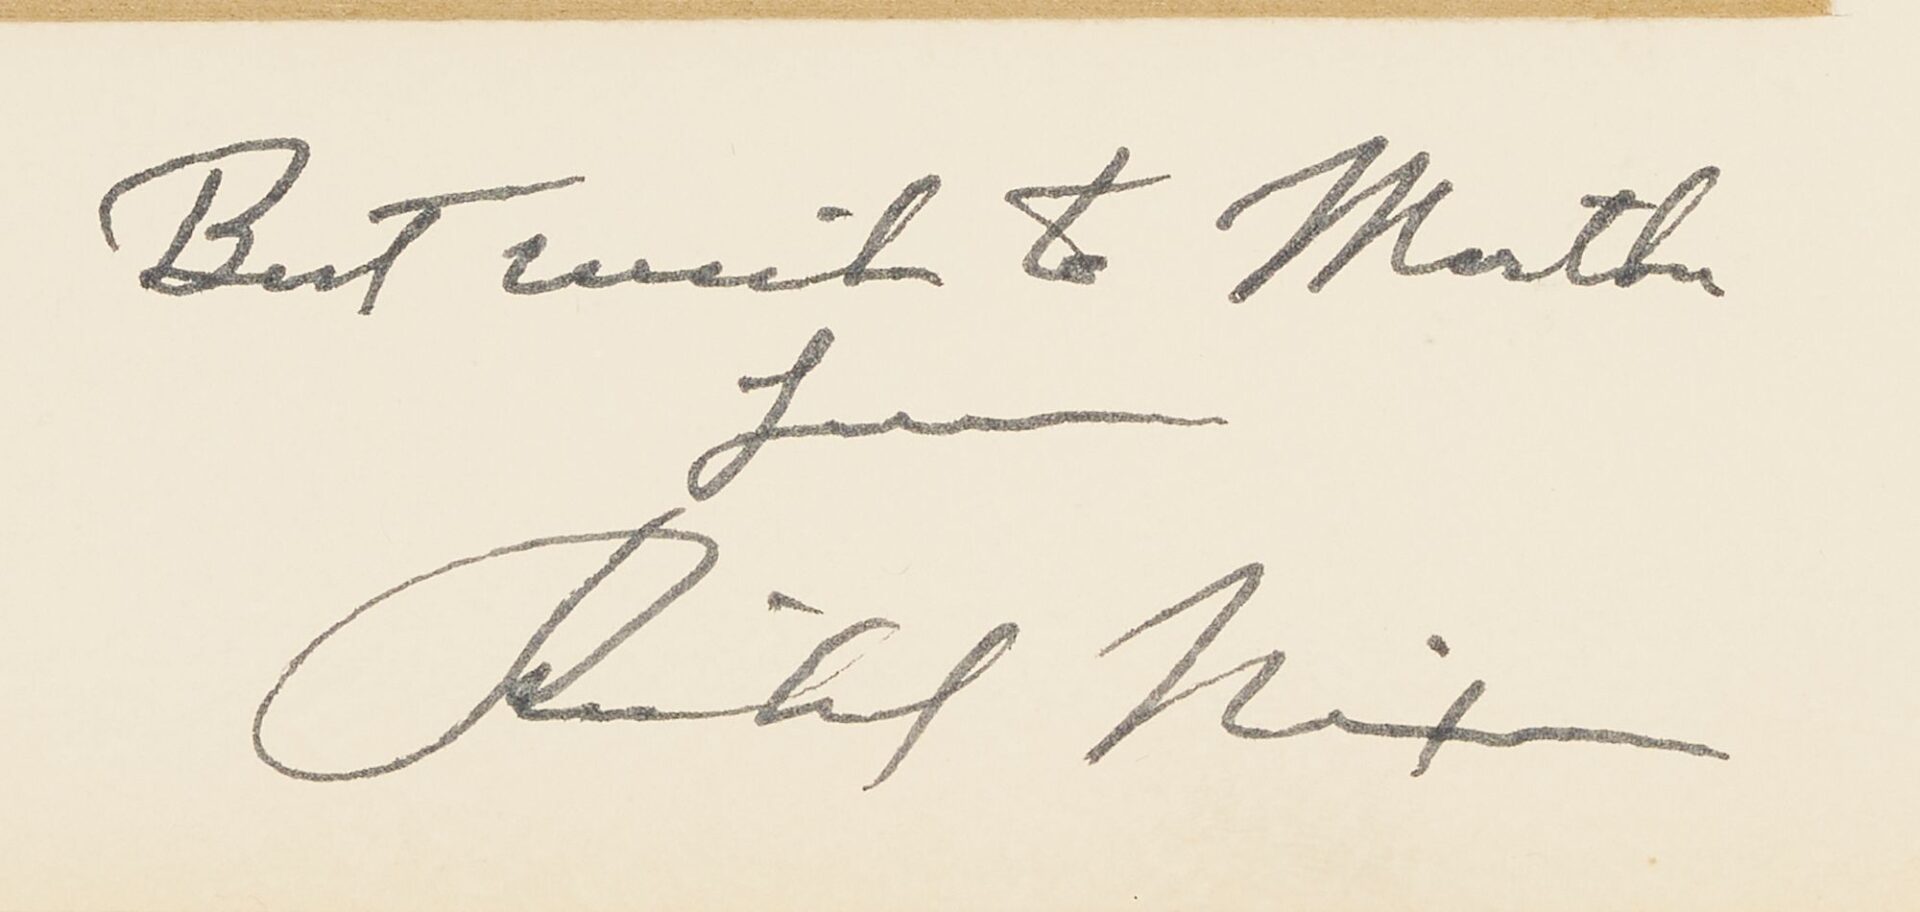 Best wishes to Martha
from
Richard Nixon